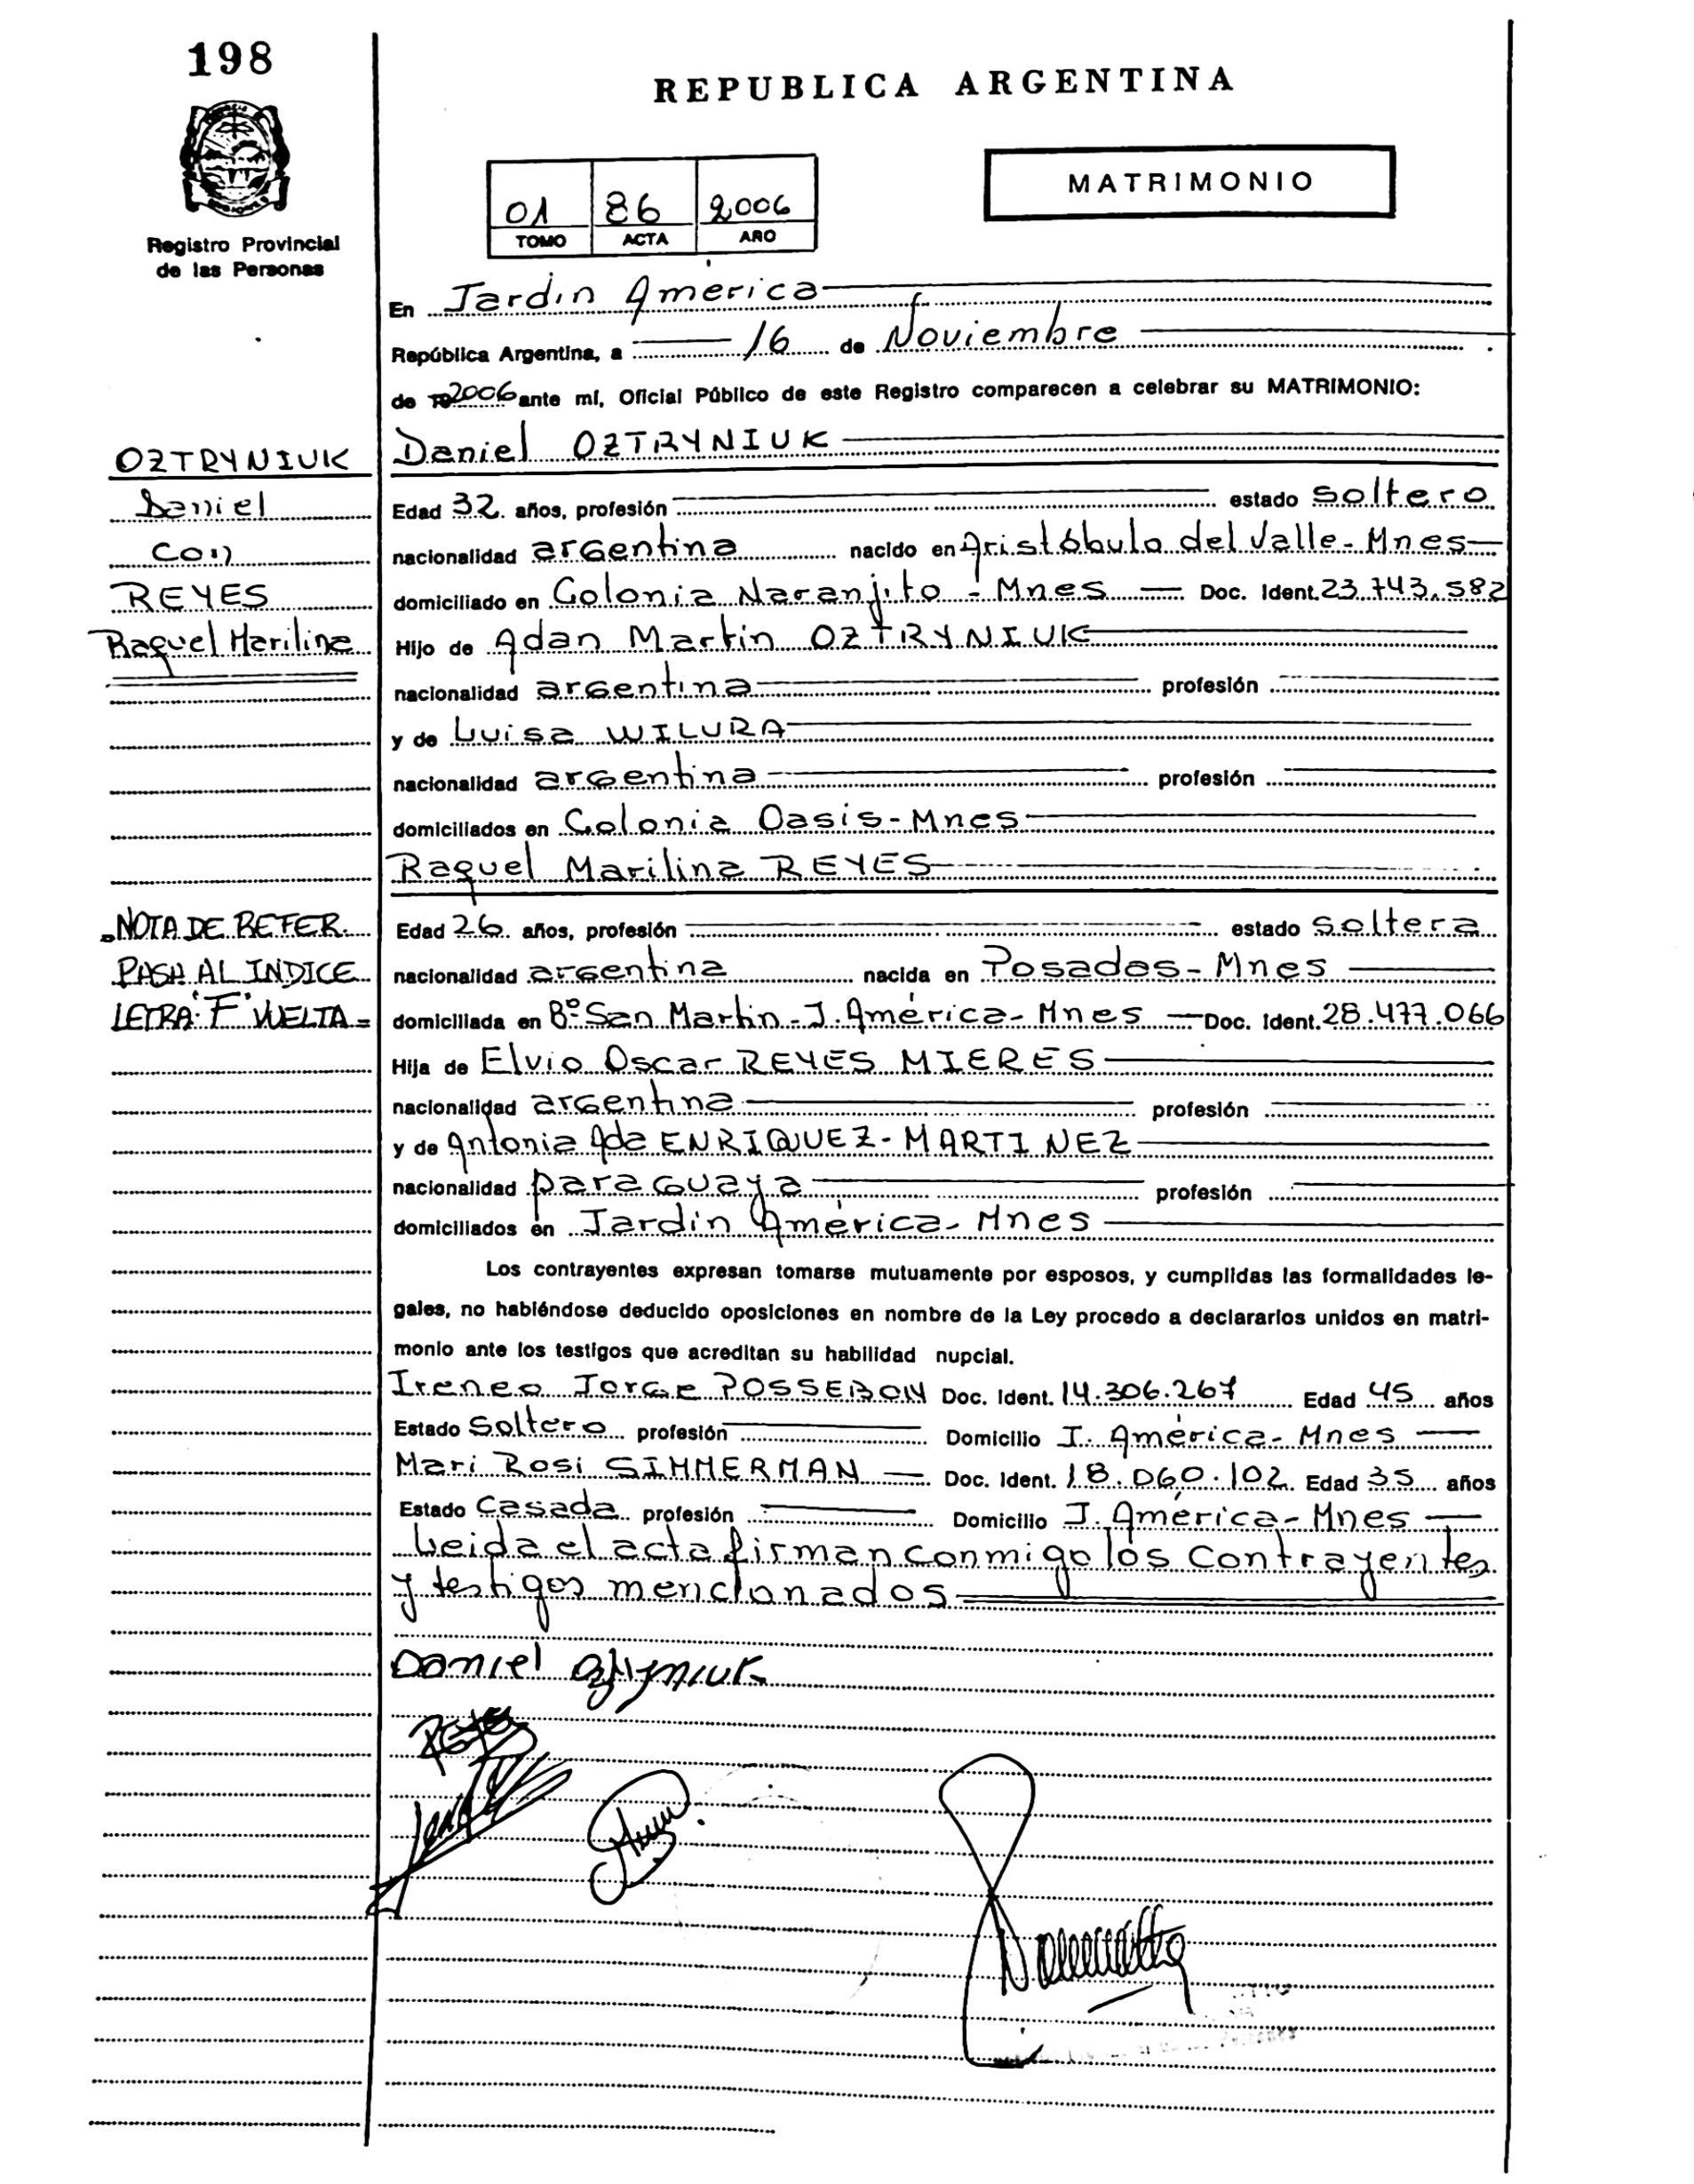 198
REPUBLICA ARGENTINA
Registro Provincial
de las Personas
01 86 2006
TOMO ACTA AÑO
MATRIMONIO
En Jardin América
República Argentina, a 16 de Noviembre
de 2006 ante mí, Oficial Público de este Registro comparecen a celebrar su MATRIMONIO:
OZTRYNIUK
Daniel
con
REYES
Raquel Marilina
Daniel OZTRYNIUK
Edad 32 años, profesión estado soltero
nacionalidad argentina nacido en Aristóbulo del Valle-Mnes
domiciliado en Colonia Naranjito - Mnes Doc. Ident. 23.743.582
Hijo de Adan Martin OZTRYNIUK
nacionalidad argentina profesión
y de Luisa WILURA
nacionalidad argentina profesión
domiciliados en Colonia Oasis-Mnes
Raquel Marilina REYES
NOTA DE REFER.
PASA AL INDICE
LETRA "F" VUELTA=
Edad 26 años, profesión estado soltera
nacionalidad argentina nacida en Posadas-Mnes
domiciliada en B° San Martin-J. América-Mnes Doc. Ident. 28.477.066
Hija de Elvio Oscar REYES MIERES
nacionalidad argentina profesión
y de Antonia Ada ENRIQUEZ-MARTINEZ
nacionalidad paraguaya profesión
domiciliados en Jardin América-Mnes
Los contrayentes expresan tomarse mutuamente por esposos, y cumplidas las formalidades le-
gales, no habiéndose deducido oposiciones en nombre de la Ley procedo a declararlos unidos en matri-
monio ante los testigos que acreditan su habilidad nupcial.
Ireneo Jorge POSSEBON Doc. Ident. 14.306.267 Edad 45 años
Estado Soltero profesión Domicilio J. América-Mnes
Mari Rosi SIMMERMAN Doc. Ident. 18.060.102 Edad 35 años
Estado Casada profesión Domicilio J. América-Mnes
Leida el acta firman conmigo los contrayentes
y testigos mencionados
Daniel Oztryniuk
Reyes